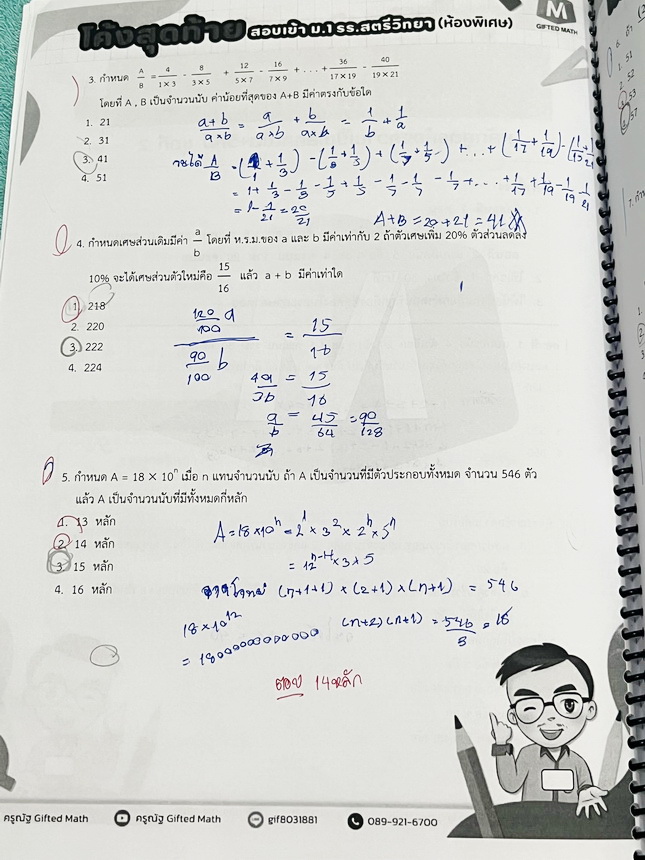 โค้งสุดท้าย สอบเข้า ม.1 รร.สตรีวิทยา (ห้องพิเศษ)
M
GIFTED MATH
3. กำหนด A/B = 4/(1 × 3) - 8/(3 × 5) + 12/(5 × 7) - 16/(7 × 9) + . . . + 36/(17 × 19) - 40/(19 × 21)
โดยที่ A , B เป็นจำนวนนับ ค่าน้อยที่สุดของ A+B มีค่าตรงกับข้อใด
1. 21
2. 31
3. 41
4. 51
(a+b)/(a×b) = a/(a×b) + b/(a×b) = 1/b + 1/a
= 1 - 1/21 = 20/21
A+B = 20+21 = 41
4. กำหนดเศษส่วนเดิมมีค่า a/b โดยที่ ห.ร.ม.ของ a และ b มีค่าเท่ากับ 2 ถ้าตัวเศษเพิ่ม 20% ตัวส่วนลดลง
10% จะได้เศษส่วนตัวใหม่คือ 15/16 แล้ว a + b มีค่าเท่าใด
1. 218
2. 220
3. 222
4. 224
(120/100 a)/(90/100 b) = 15/16
4a/3b = 15/16
a/b = 45/64 = 90/128
5. กำหนด A = 18 × 10ⁿ เมื่อ n แทนจำนวนนับ ถ้า A เป็นจำนวนที่มีตัวประกอบทั้งหมด จำนวน 546 ตัว
แล้ว A เป็นจำนวนนับที่มีทั้งหมดกี่หลัก
1. 13 หลัก
2. 14 หลัก
3. 15 หลัก
4. 16 หลัก
A = 18×10ⁿ = 2¹ × 3² × 2ⁿ × 5ⁿ
(n+1+1) × (2+1) × (n+1) = 546
18 × 10¹²
(n+2)(n+1) = 546/3
= 18000000000000
ตอบ 14 หลัก
ครูณัฐ Gifted Math
ครูณัฐ Gifted Math
gif8031881
089-921-6700